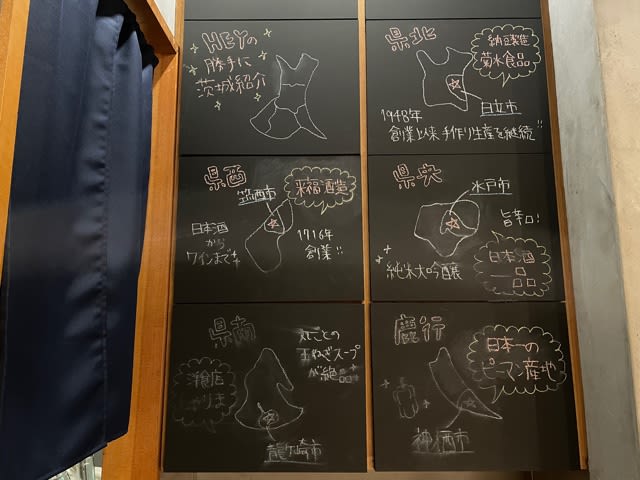 HEYの
勝手に
茨城紹介
県北
納豆製造
菊水食品
日立市
1948年
創業以来 手作り生産を継続!!
県西
筑西市
来福酒造
日本酒
から
ワインまで
1716年
創業!!
県央
水戸市
旨辛口!
純米大吟醸
日本酒
一品
県南
丸ごとの
玉ねぎスープ
が絶品
洋食店
龍ケ崎市
鹿行
日本一の
ピーマン産地
神栖市